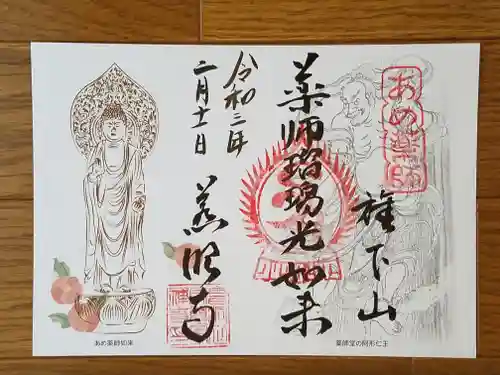 あめ薬師
下山
薬師瑠璃光如来
令和三年
二月十一日
慈眼寺
あめ薬師如来
薬師堂の阿形仁王